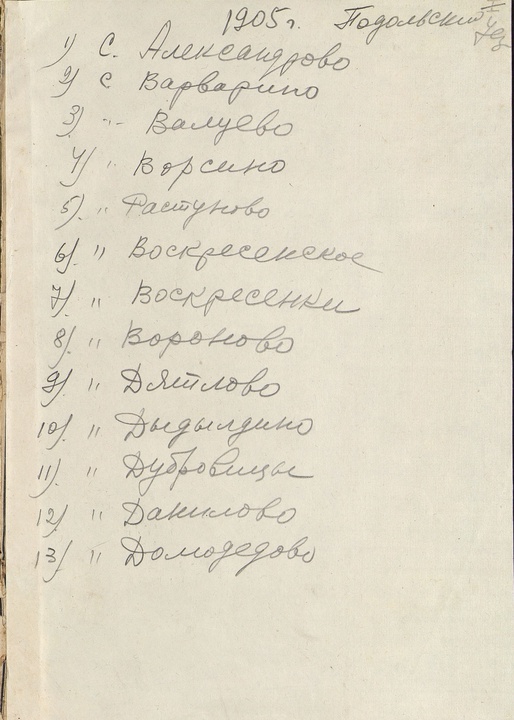 1905 г. Подольский уез
1) С. Александрово
2) С Варварино
3) -"- Валуево
4) " Ворсино
5). " Растуново
6). " Воскресенское
7). " Воскресенки
8). " Вороново
9). " Дятлово
10). " Дыдылдино
11). " Дубровицы
12) " Данилово
13) " Домодедово